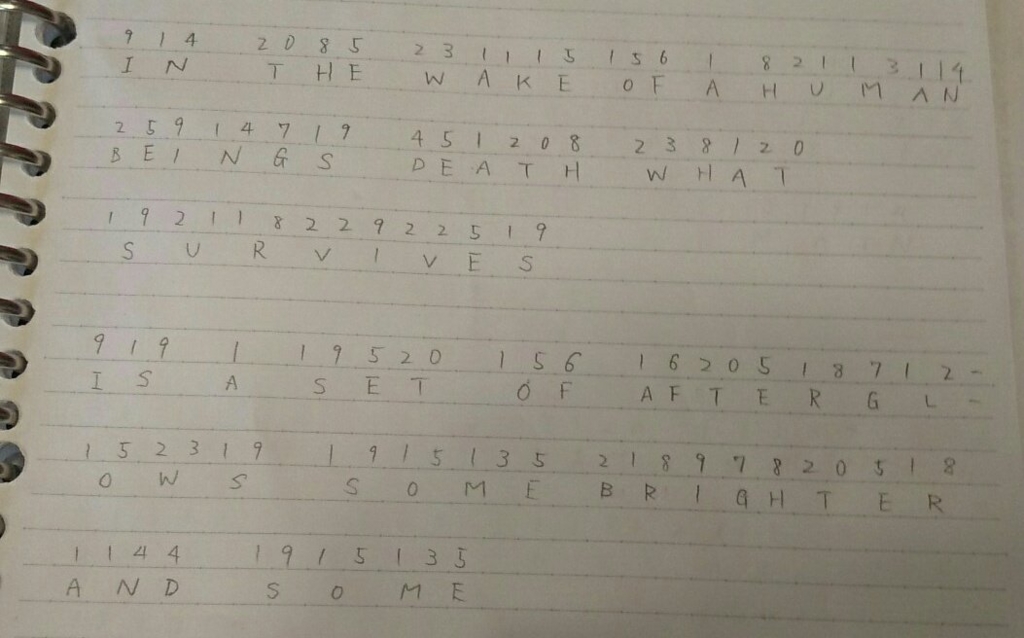 9 1 4 2 0 8 5 2 3 1 1 1 5 1 5 6 1 8 2 1 1 3 1 1 4
I N T H E W A K E O F A H U M A N
2 5 9 1 4 7 1 9 4 5 1 2 0 8 2 3 8 1 2 0
B E I N G S D E A T H W H A T
1 9 2 1 1 8 2 2 9 2 2 5 1 9
S U R V I V E S
9 1 9 1 1 9 5 2 0 1 5 6 1 6 2 0 5 1 8 7 1 2 -
I S A S E T O F A F T E R G L -
1 5 2 3 1 9 1 9 1 5 1 3 5 2 1 8 9 7 8 2 0 5 1 8
O W S S O M E B R I G H T E R
1 1 4 4 1 9 1 5 1 3 5
A N D S O M E